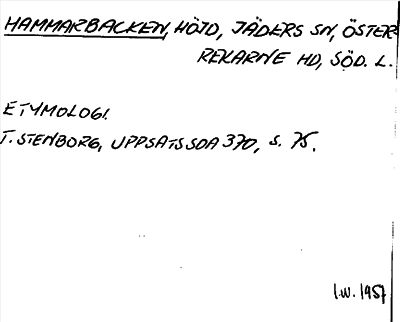 HAMMARBACKEN, HÖJD, JÄDERS SN, ÖSTER
REKARNE HD, SÖD. L.
ETYMOLOGI.
T. STENBORG, UPPSATS SOA 370, S. 75.
I.W. 1957